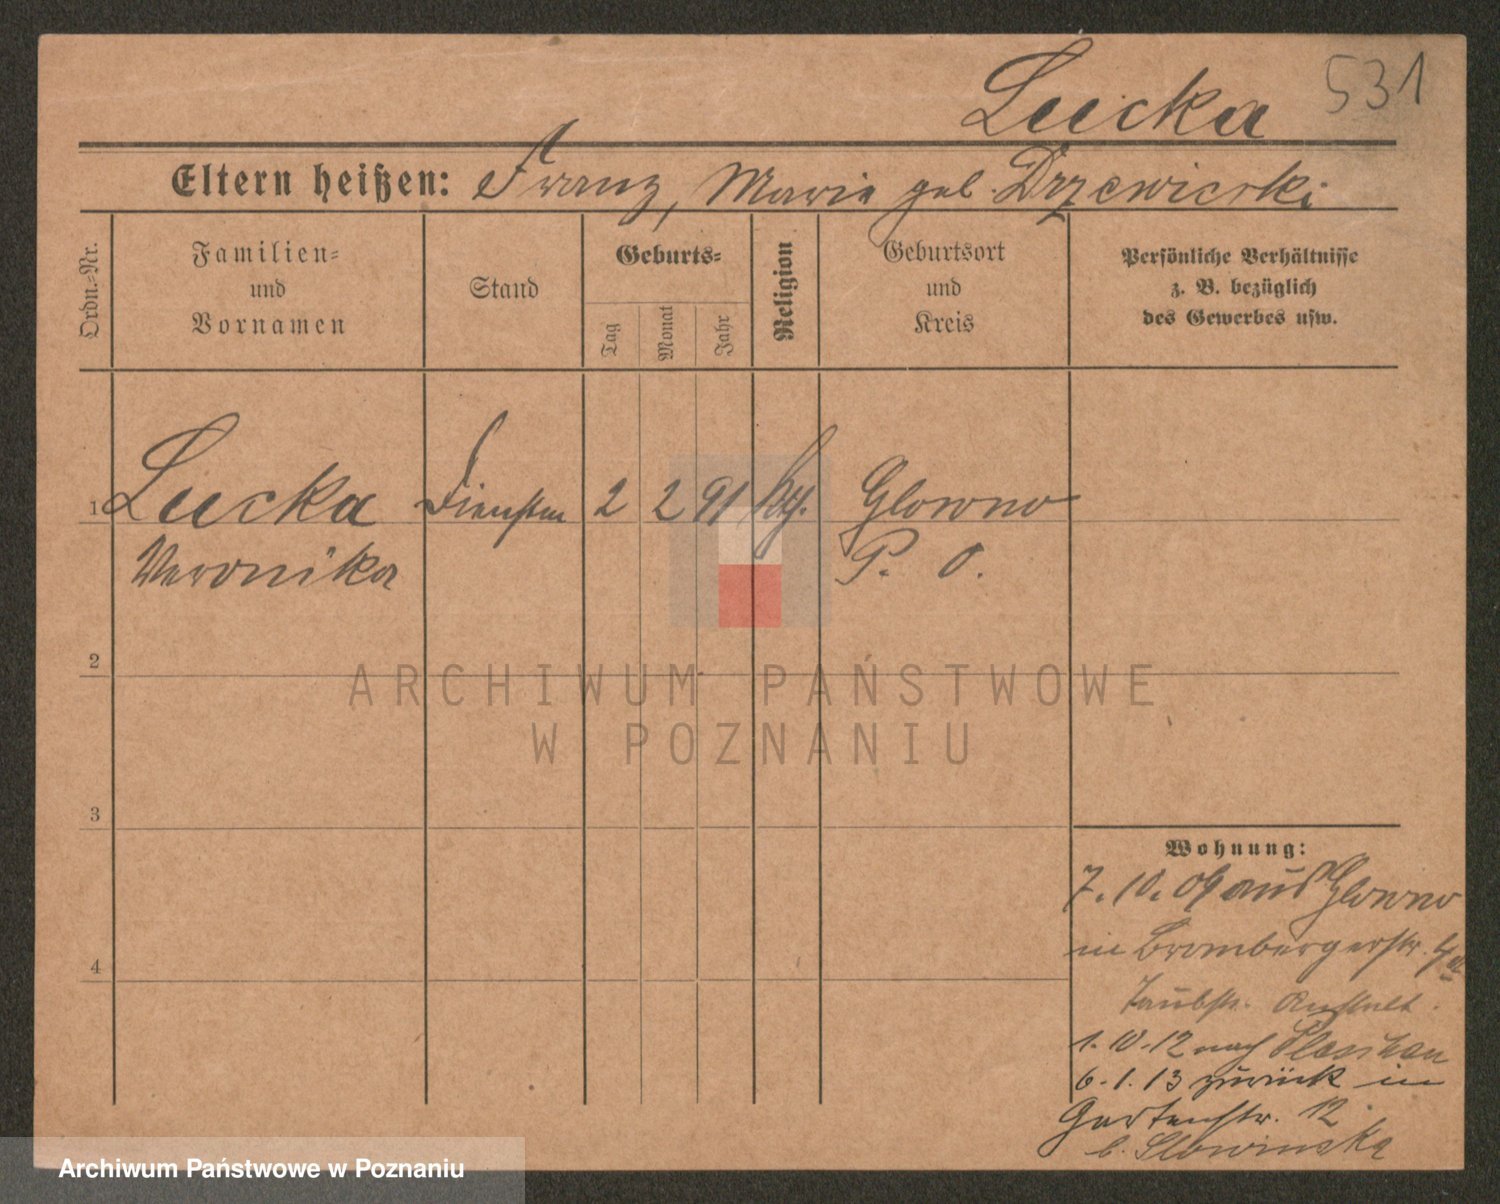 Lucka 531
Eltern heißen: Franz, Marie geb. Drzewiecki
Ordn.-Nr.
Familien-
und
Vornamen
Stand
Geburts-
Tag
Monat
Jahr
Religion
Geburtsort
und
Kreis
Persönliche Verhältnisse
z. B. bezüglich
des Gewerbes usw.
1 Lucka Dienstm 2 2 91 Glowno
Veronika P. O.
2
ARCHIWUM PAŃSTWOWE
W POZNANIU
3
Wohnung:
7. 10. 09 aus Glowno
in Brombergerstr.
Taubst. Anstalt.
1. 10. 12 nach
6. 1. 13 zurück in
Gartenstr. 12
b. Slowinska
4
Archiwum Państwowe w Poznaniu